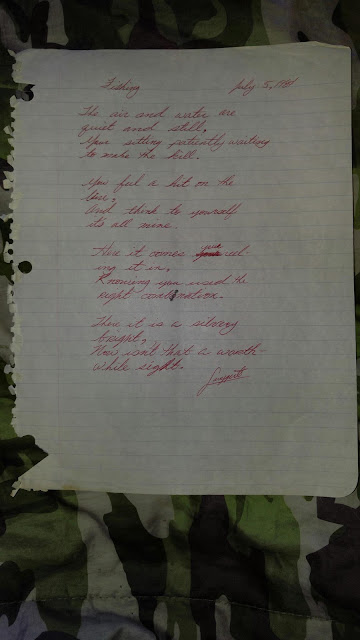 Fishing July 5, 1981
The air and water are
quiet and still,
Your sitting patiently waiting
to make the kill.
You feel a hit on the
line,
And think to yourself
its all mine.
Here it comes your reel-
ing it in,
Knowing you used the
right combination.
There it is a silvery
bright,
Now isn't that a worth
while sight.